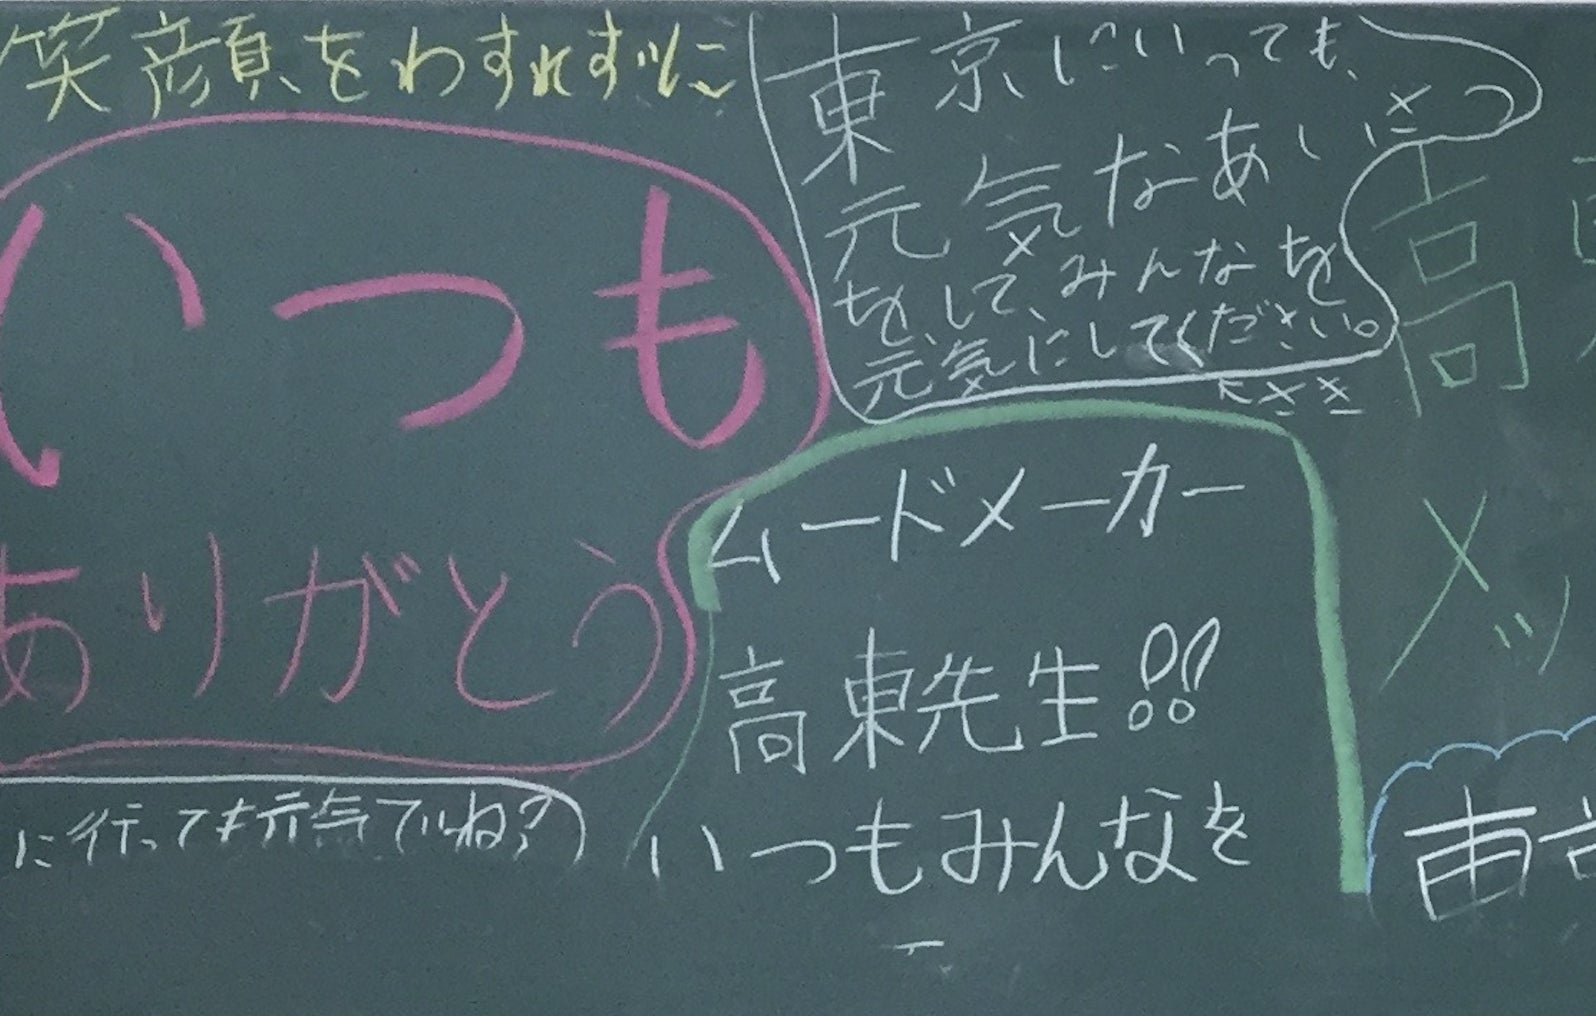 笑顔をわすれずに
いつも
ありがとう
に行っても元気でいね?
東京にいっても、
元気なあいさつ
をして、みんなを
元気にしてください。
ムードメーカー
高東先生!!
いつもみんなを
高
メッ